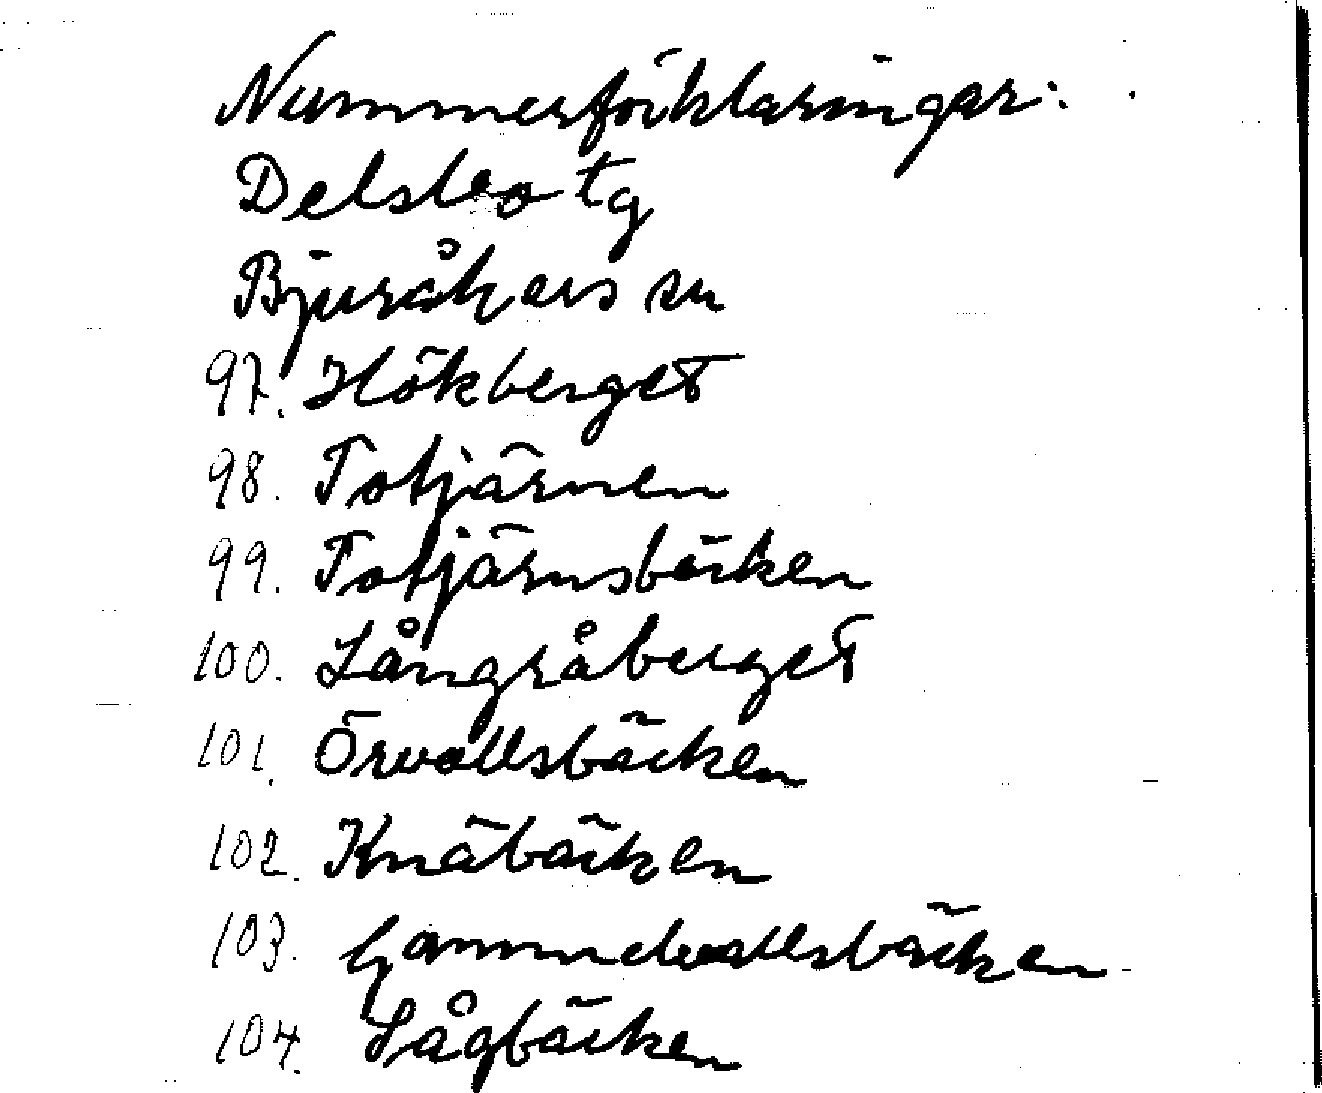 Nummerförklaringar:
Delsbo tg
Bjuråkers sn
97. Hökberget
98. Totjärnen
99. Totjärnsbäcken
100. Långråberget
101. Örvallsbäcken
102. Knäbäcken
103. Gammelvallsbäcken
104. Sågbäcken